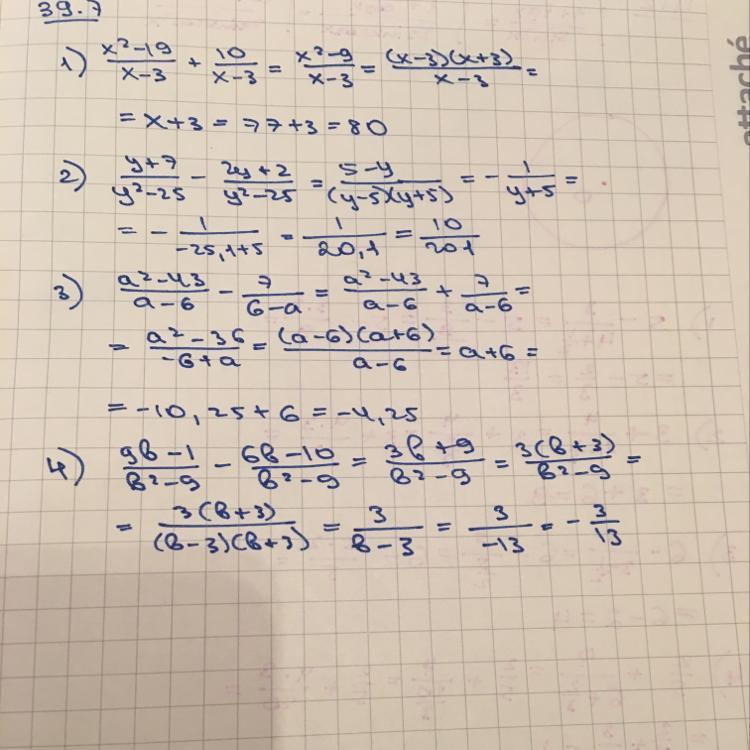 39.7
1) \frac{x²-19}{x-3} + \frac{10}{x-3} = \frac{x²-9}{x-3} = \frac{(x-3)(x+3)}{x-3} =
= x+3 = 77+3 = 80
2) \frac{y+7}{y²-25} - \frac{2y+2}{y²-25} = \frac{5-y}{(y-5)(y+5)} = -\frac{1}{y+5} =
= -\frac{1}{-25,1+5} = \frac{1}{20,1} = \frac{10}{201}
3) \frac{a²-43}{a-6} - \frac{7}{6-a} = \frac{a²-43}{a-6} + \frac{7}{a-6} =
= \frac{a²-36}{-6+a} = \frac{(a-6)(a+6)}{a-6} = a+6 =
= -10,25+6 = -4,25
4) \frac{9b-1}{b²-9} - \frac{6b-10}{b²-9} = \frac{3b+9}{b²-9} = \frac{3(b+3)}{b²-9} =
= \frac{3(b+3)}{(b-3)(b+3)} = \frac{3}{b-3} = \frac{3}{-13} = -\frac{3}{13}